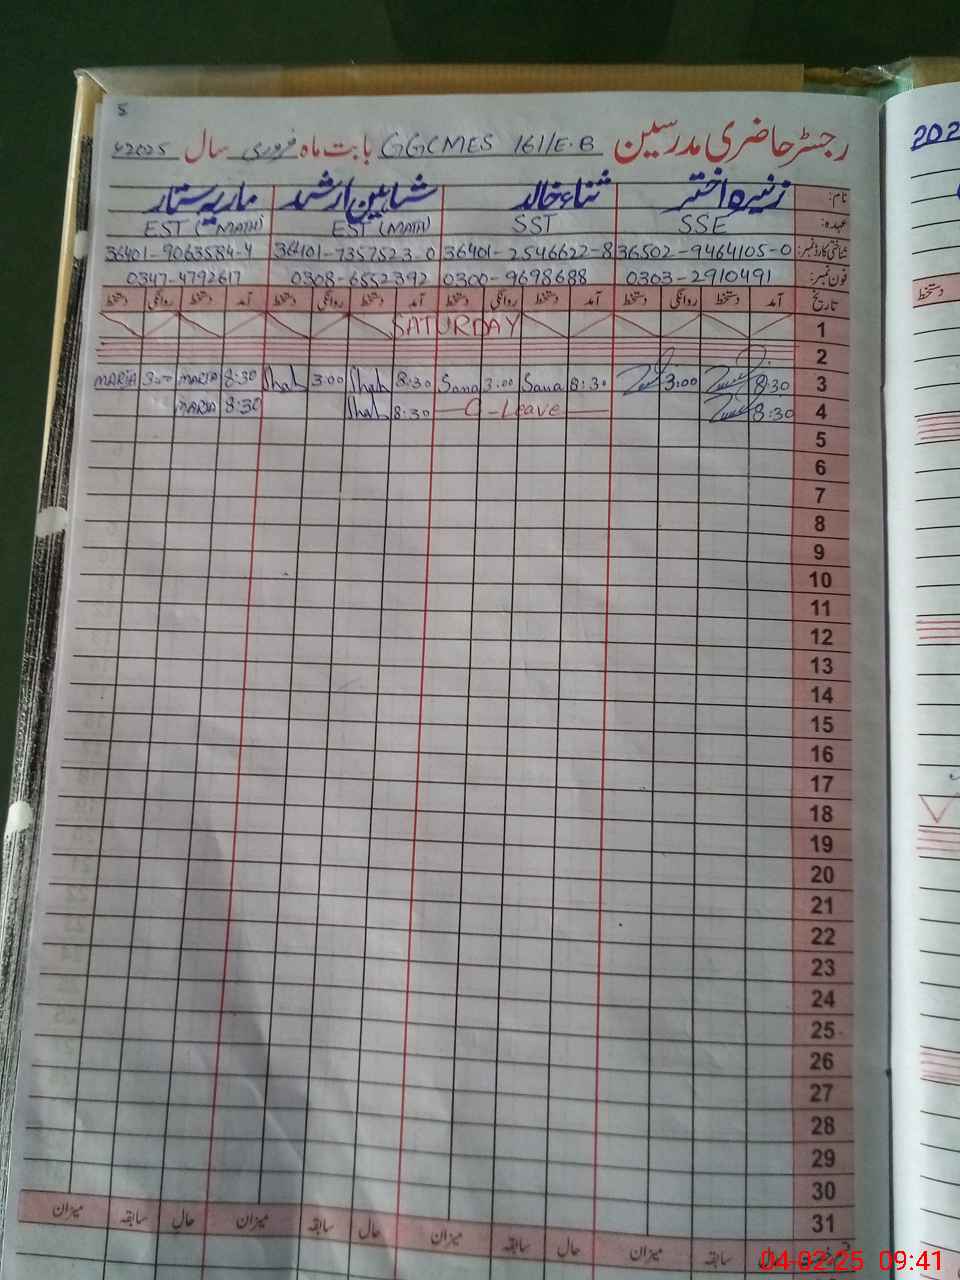 5
رجسٹر حاضری مدرسین GGCMES 161/E.B بابت ماہ فروری سال 2025ء
نام: زنیرہ اختر ثناء خالد شاہین ارشد ماریہ ستار
عہدہ: SSE SST EST (MATH) EST (MATH)
شناختی کارڈ نمبر: 36502-9464105-0 36401-2546622-8 36401-7357523-0 36401-9063584-4
فون نمبر: 0303-2910491 0300-9698688 0308-6552392 0347-4792617
تاریخ آمد دستخط روانگی دستخط آمد دستخط روانگی دستخط آمد دستخط روانگی دستخط آمد دستخط روانگی دستخط
1 SATURDAY
2
3 8:30 3:00 8:30 Sana 3:00 Sana 8:30 Shah 3:00 Shah 8:30 MARIA 3:00 MARIA
4 8:30 C-Leave 8:30 Shah 8:30 MARIA
5
6
7
8
9
10
11
12
13
14
15
16
17
18
19
20
21
22
23
24
25
26
27
28
29
30
31
حال سابقہ میزان حال سابقہ میزان حال سابقہ میزان سابقہ میزان
202
دستخط
04-02-25 09:41